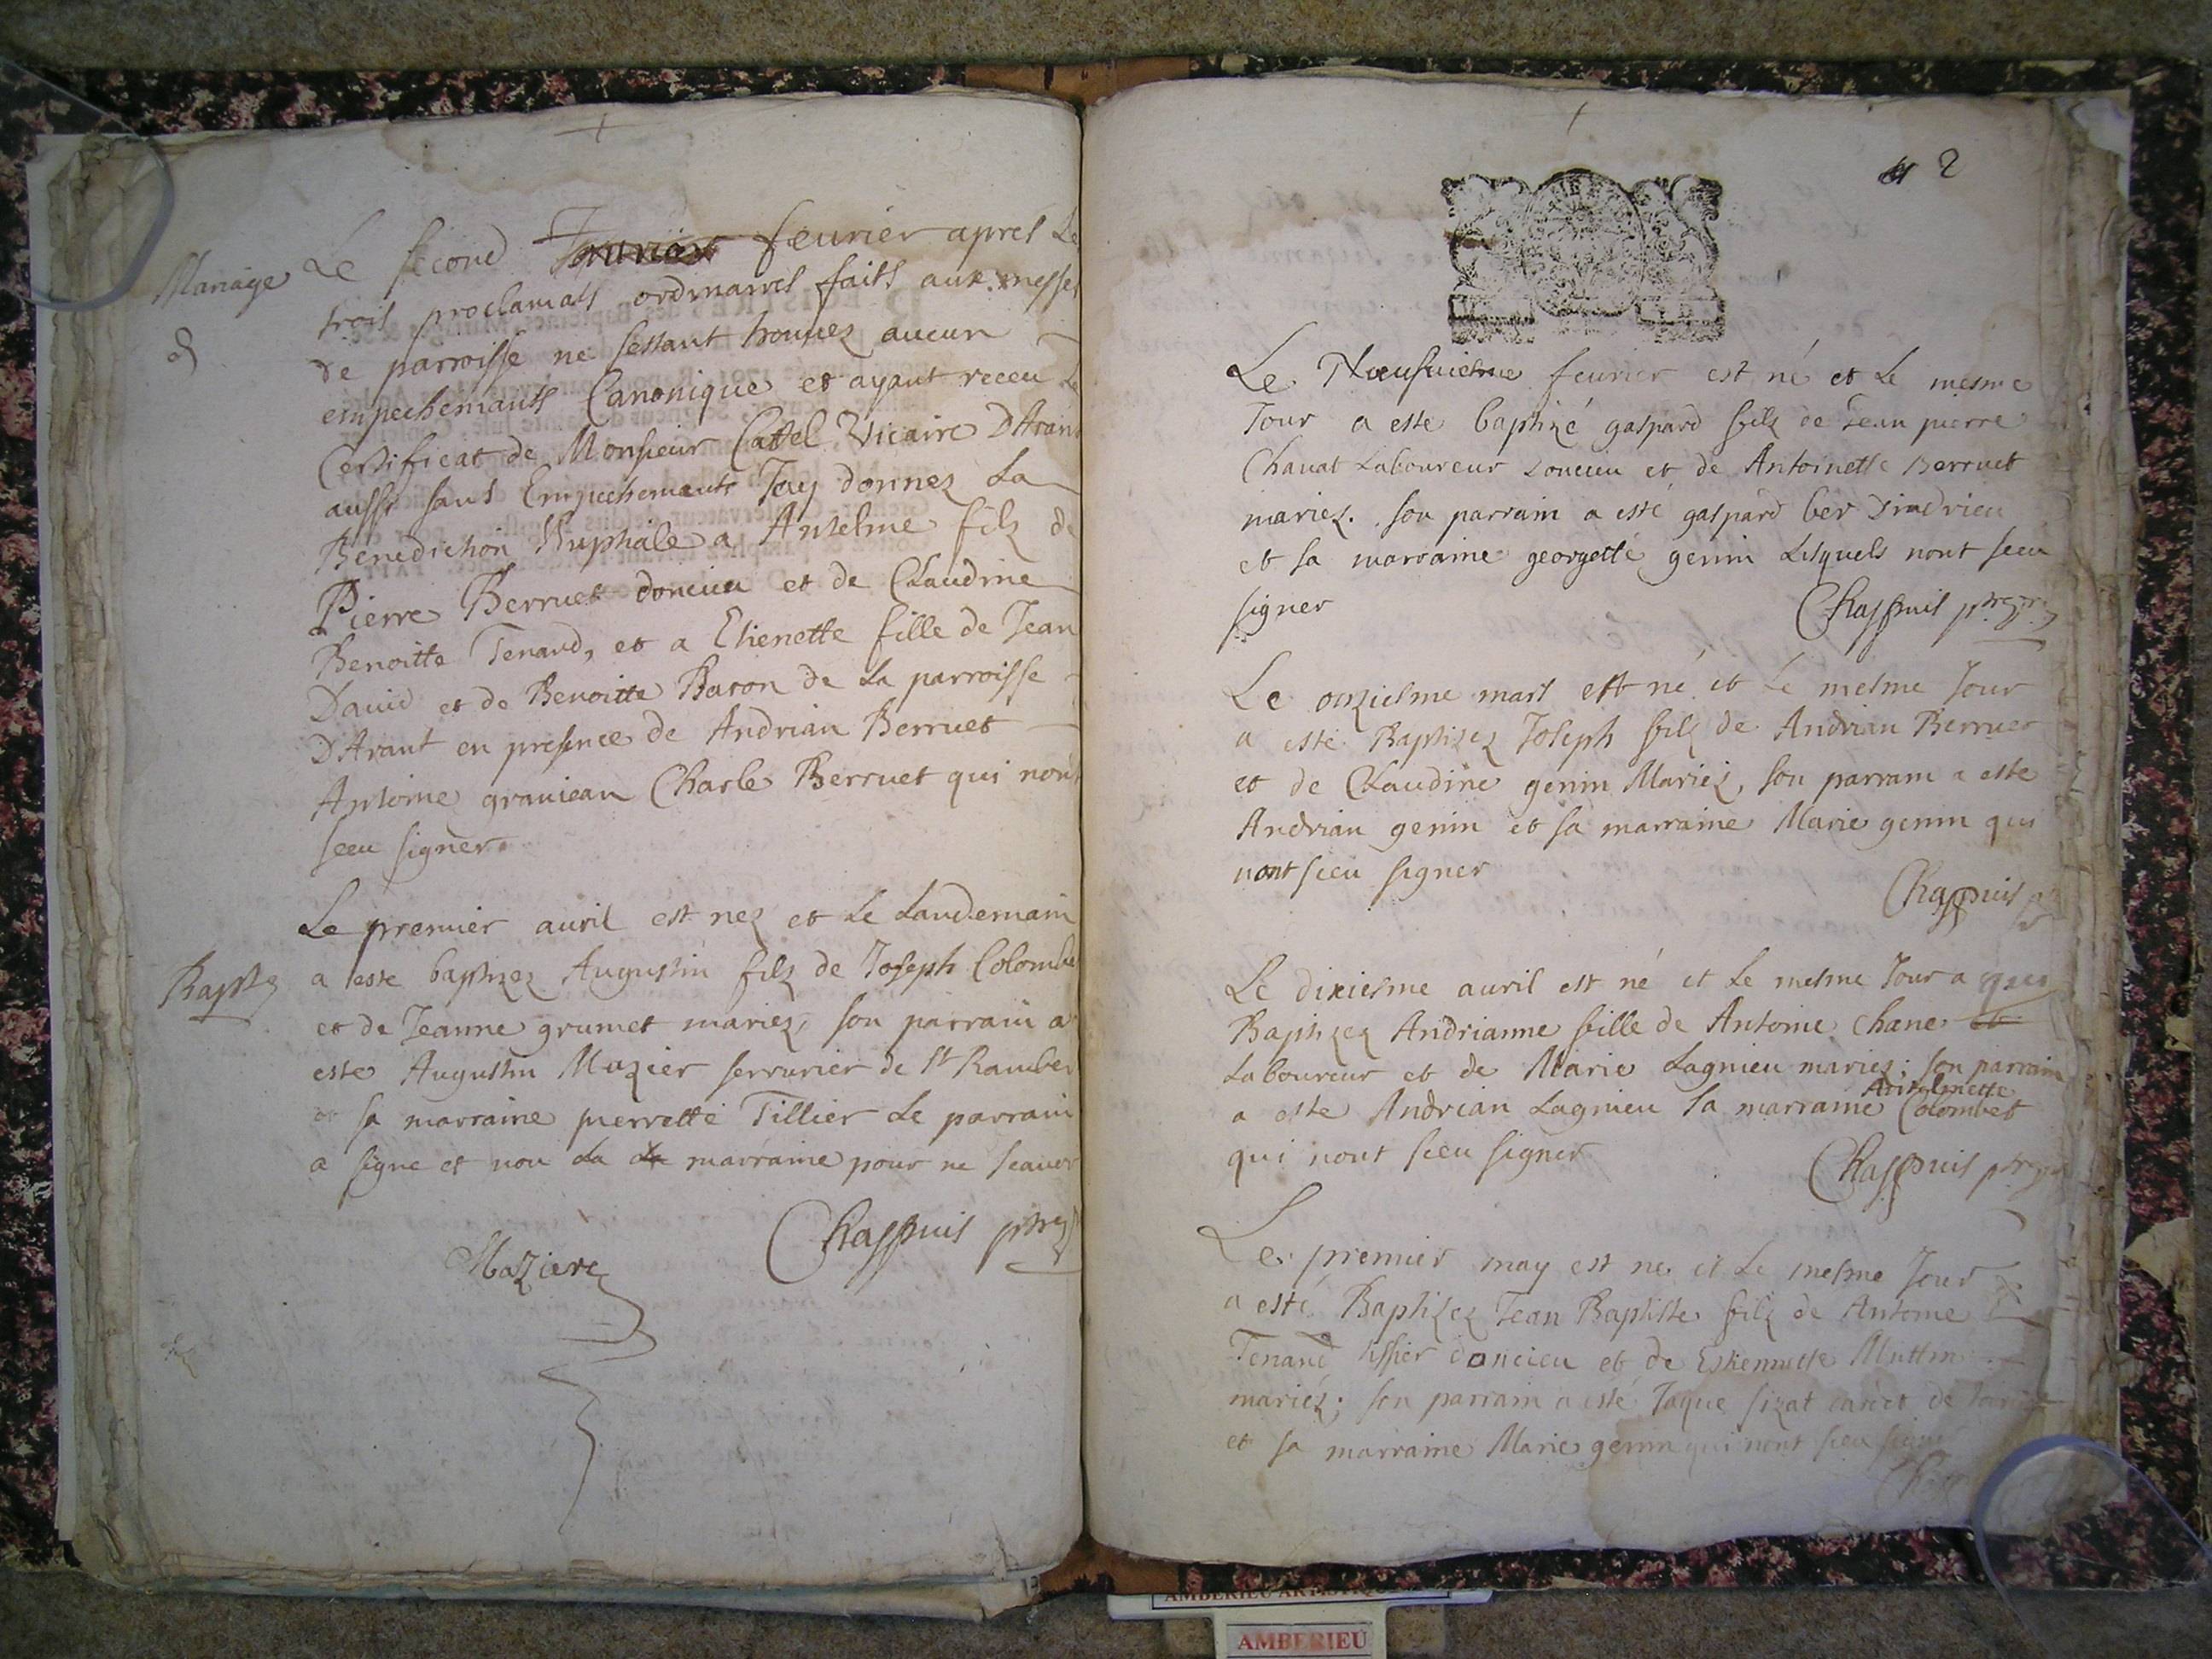 Mariage
Le second Januier feurier apres Le
trois proclamats ordinaires faits aux messes
de parroisse ne sestant trouuez aucun
empechemants Canonique et ayant receu Le
Certificat de Monsieur Cattel Vicaire DAran
aussi sans Empechemants Jay donnez La
Benediction Nuptiale a Antelme filz de
Pierre Berruet doncieu et de Claudine
Benoitte Tenand, et a Etienette fille de Jean
Dauid et de Benoitte Baron de La parroisse
DArant en presence de Andrian Berruet
Antoine grauieau Charle Berruet qui nont
sceu signer
Bapte
Le premier auril est nez et Le Landemain
a este baptizez Augustin filz de Joseph Colombe
et de Jeanne grumet mariez, son parrain a
este Augustin Mazier serrurier de St Ramber
et sa marraine pierrette Tillier Le parrain
a signe et non La marraine pour ne scauoir
Chappuis ptre
Maziere
2
Le Neufuiesme feurier est né et Le mesme
Jour a este baptizé gaspard filz de Jean pierre
Chauat Laboureur Doncieu et de Antoinette Berruet
mariez. son parrain a esté gaspard ber Dindrieu
et sa marraine georgette genin Lesquels nont sceu
signer
Chappuis ptre
Le onziesme mars est né et Le mesme Jour
a esté Baptizez Joseph filz de Andrian Berruet
et de Claudine genin Mariez, son parram a este
Andrian genin et sa marraine Marie genin qui
nont sceu signer
Chappuis
Le dixiesme auril est né et Le mesme Jour a
Baptizez Andrianne fille de Antoine Chane et
Laboureur et de Marie Lagnieu mariez; son parrain
a este Andrian Lagnieu sa marraine Antelmette Colombet
qui nont sceu signer
Chappuis ptre
Le premier may est ne et Le mesme Jour
a esté Baptizez Jean Baptiste filz de Antoine
Tenand tissier doncieu et de Estiennette
mariéz; son parrain a esté Jaque sizat de
et sa marraine Marie genin qui nont sceu signer
AMBERIEU